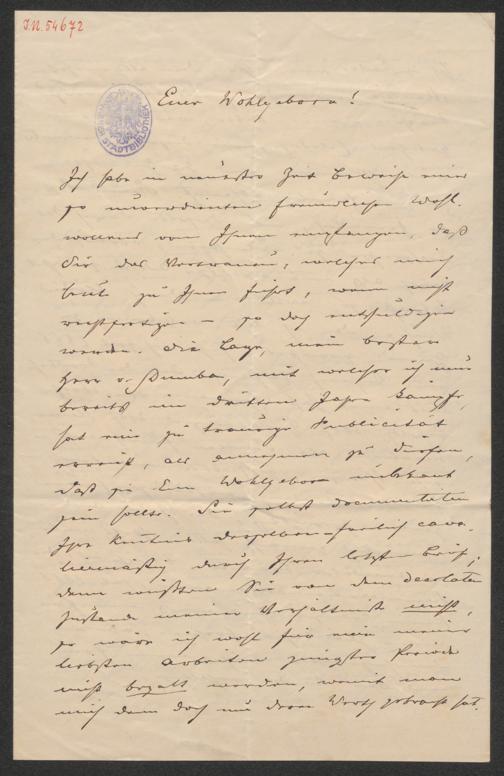 I.N. 54672
STADTBIBLIOTHEK
Euer Wohlgeboren!
Ich habe in neuester Zeit Beweise eines
so unverdienten freundlichen Wohl-
wollens von Ihnen empfangen, daß
Sie das Vertrauen, welches mich
heute zu Ihnen führt, wenn nicht
rechtfertigen – so doch entschuldigen
werden. Die Lage, mein bester
Herr v. Dumba, mit welcher ich nun
bereits im dritten Jahre kämpfe,
hat eine zu traurige Publicität
erreicht, als annehmen zu dürfen,
daß sie Euer Wohlgeboren unbekannt
sein sollte. Sie selbst documenteten
Ihre Kenntnis derselben – freilich cava-
liermäßig durch Ihren letzten Brief;
denn wüßten Sie von dem desolaten
Zustande meiner Verhältnisse nicht,
so wäre ich wohl für eine meiner
liebsten Arbeiten jüngster Periode
nicht bezalt worden, womit man
mich dem doch nur deren Werth gebracht hat.